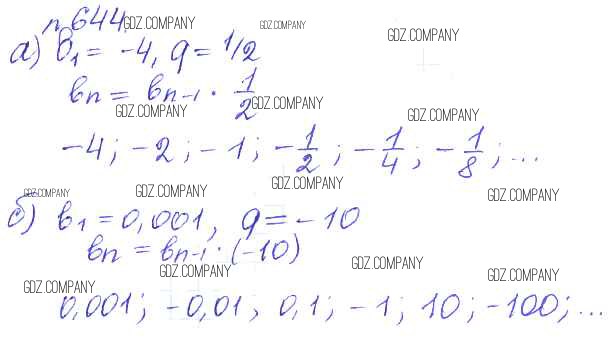 п 644. GDZ.COMPANY GDZ.COMPANY GDZ.COMPANY
а) b₁ = -4, q = 1/2
bn = bn-1 · 1/2
GDZ.COMPANY GDZ.COMPANY GDZ.COMPANY
-4; -2; -1; -1/2; -1/4; -1/8; ...
GDZ.COMPANY GDZ.COMPANY GDZ.COMPANY GDZ.COMPANY
б) b₁ = 0,001, q = -10
bn = bn-1 · (-10)
GDZ.COMPANY GDZ.COMPANY GDZ.COMPANY GDZ.COMPANY
0,001; -0,01; 0,1; -1; 10; -100; ...